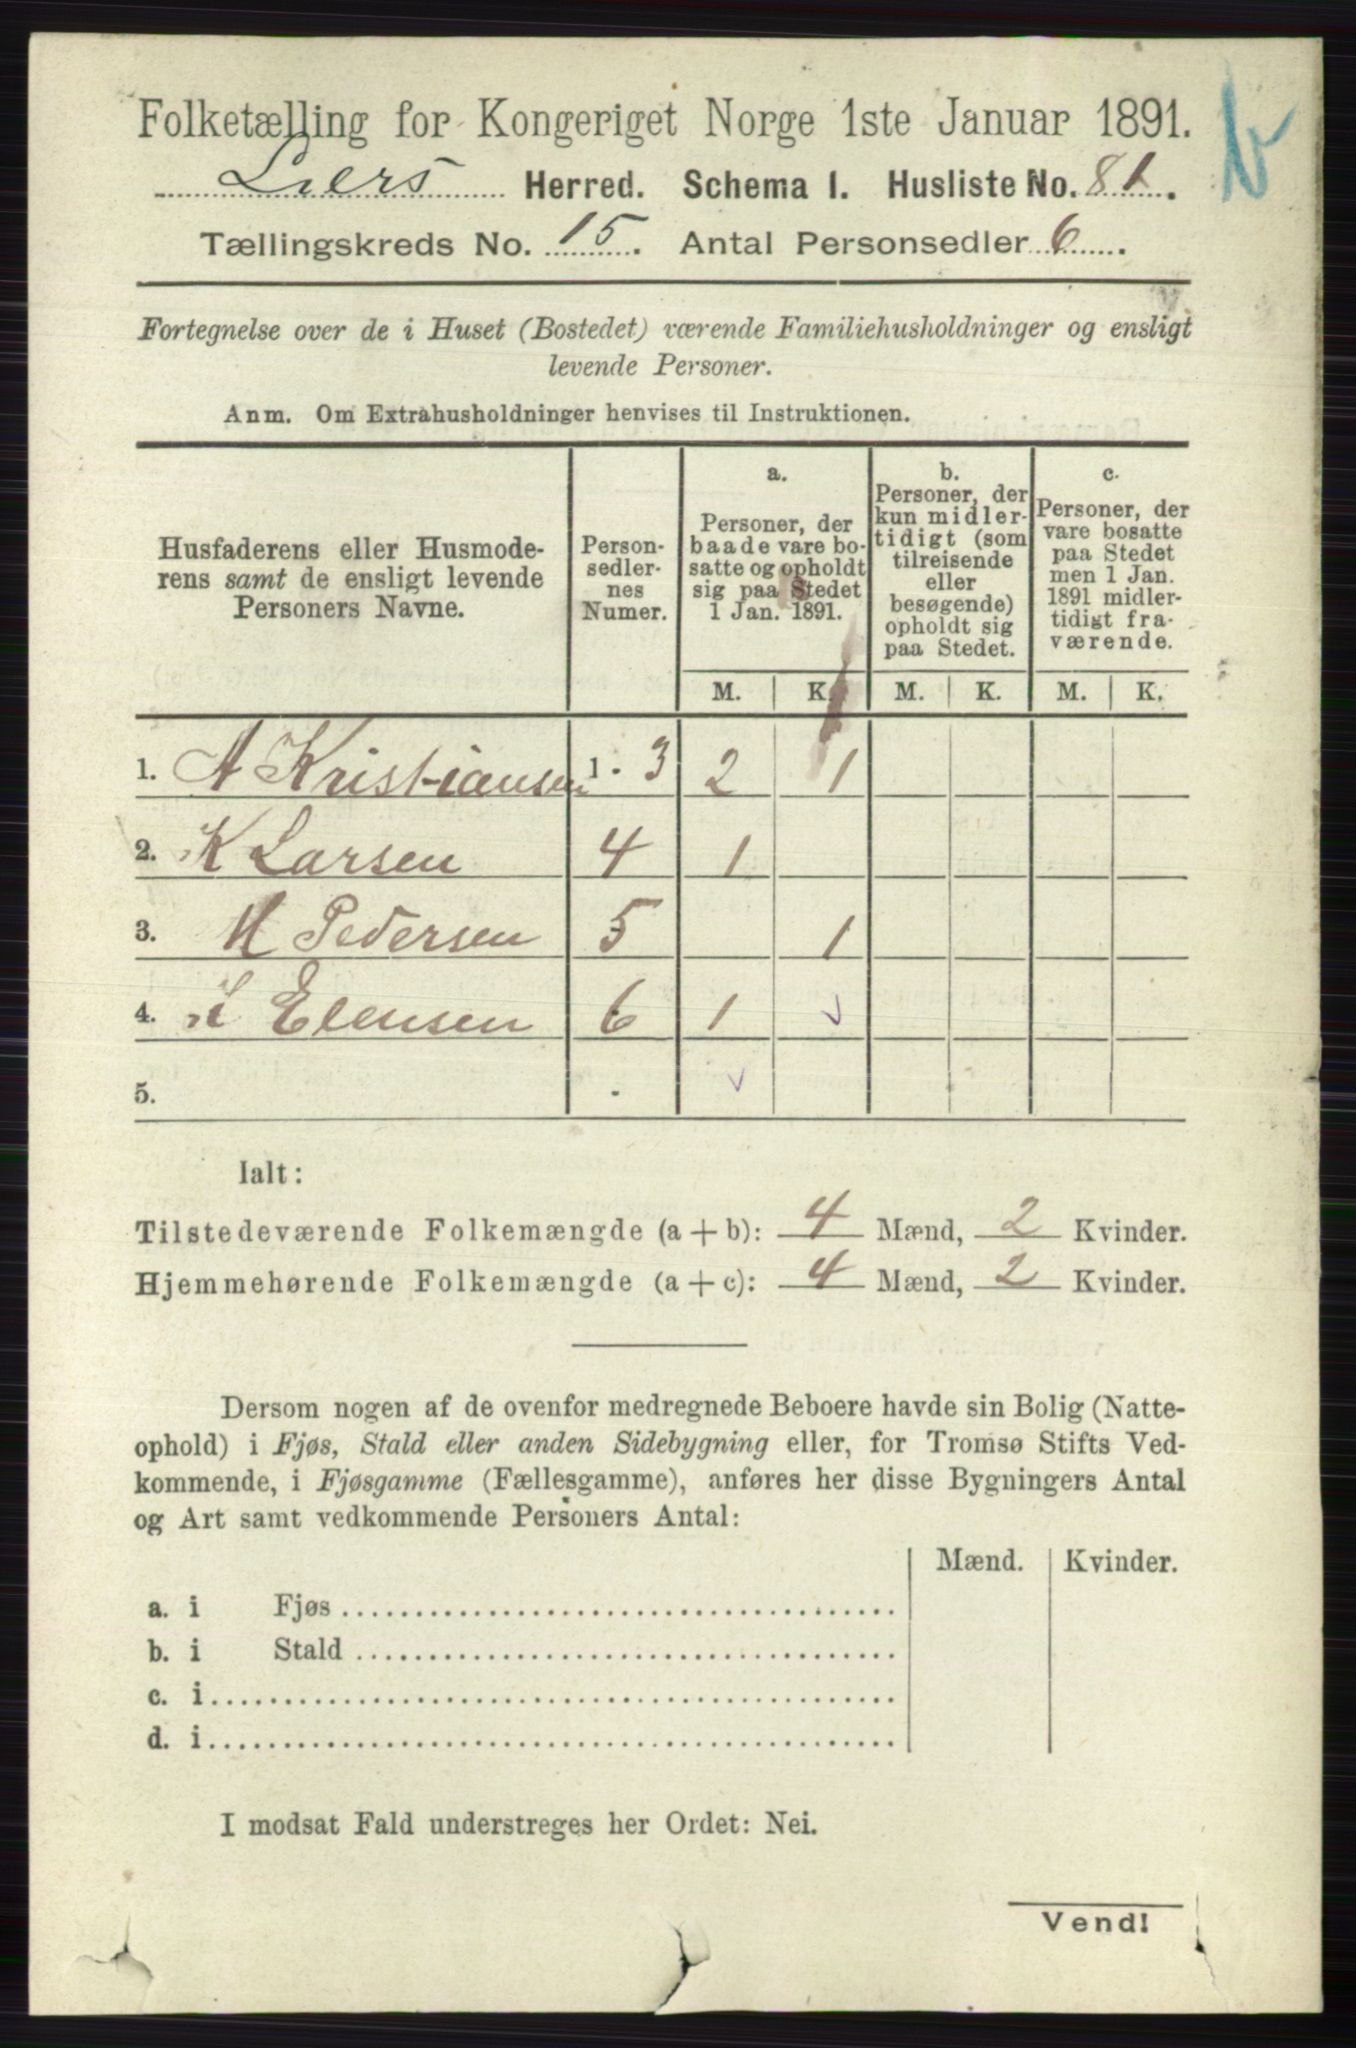 Folketælling for Kongeriget Norge 1ste Januar 1891.
Liers Herred. Schema 1. Husliste No. 81.
Tællingskreds No. 15. Antal Personsedler 6.
Fortegnelse over de i Huset (Bostedet) værende Familiehusholdninger og ensligt
levende Personer.
Anm. Om Extrahusholdninger henvises til Instruktionen.
Husfaderens eller Husmode-
rens samt de ensligt levende
Personers Navne.
Person-
sedler-
nes
Numer.
a.
Personer, der
baade vare bo-
satte og opholdt
sig paa Stedet
1 Jan. 1891.
b.
Personer, der
kun midler-
tidigt (som
tilreisende
eller
besøgende)
opholdt sig
paa Stedet.
c.
Personer, der
vare bosatte
paa Stedet
men 1 Jan.
1891 midler-
tidigt fra-
værende.
M. K. M. K. M. K.
1. A Kristiansen 1. 3 2 1
2. K Larsen 4 1
3. M Pedersen 5 1
4. Elensen 6 1
5.
Ialt:
Tilstedeværende Folkemængde (a + b): 4 Mænd, 2 Kvinder.
Hjemmehørende Folkemængde (a + c): 4 Mænd, 2 Kvinder.
Dersom nogen af de ovenfor medregnede Beboere havde sin Bolig (Natte-
ophold) i Fjøs, Stald eller anden Sidebygning eller, for Tromsø Stifts Ved-
kommende, i Fjøsgamme (Fællesgamme), anføres her disse Bygningers Antal
og Art samt vedkommende Personers Antal:
Mænd. Kvinder.
a. i Fjøs
b. i Stald
c. i
d. i
I modsat Fald understreges her Ordet: Nei.
Vend!